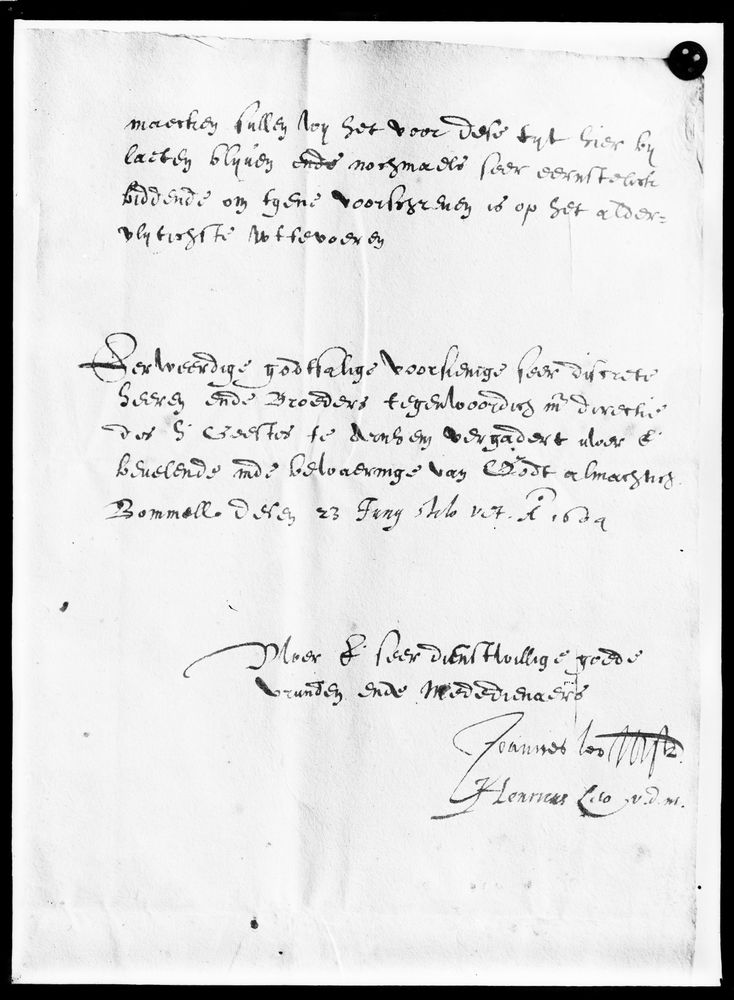 maecken sullen wy het voor dese tyt hier by
laeten blyven ende nochmaels seer eernstelick
biddende om tgene voorschreven is op het alder-
vlytichste wttevoeren
Eerweerdige godtsalige voorsienige seer discrete
heeren ende Broeders tegenwoordich inde directie
des H Geestes te Arnhem vergadert uwer E
bevelende inde bewaeringe van Godt almachtich.
Bommell. desen 23 Juny stilo vet. A° 1604
Uwer E seer dienstwillige goede
vrunden ende Mededienaers
Joannes Leo
Henricus Leo v.d.m.